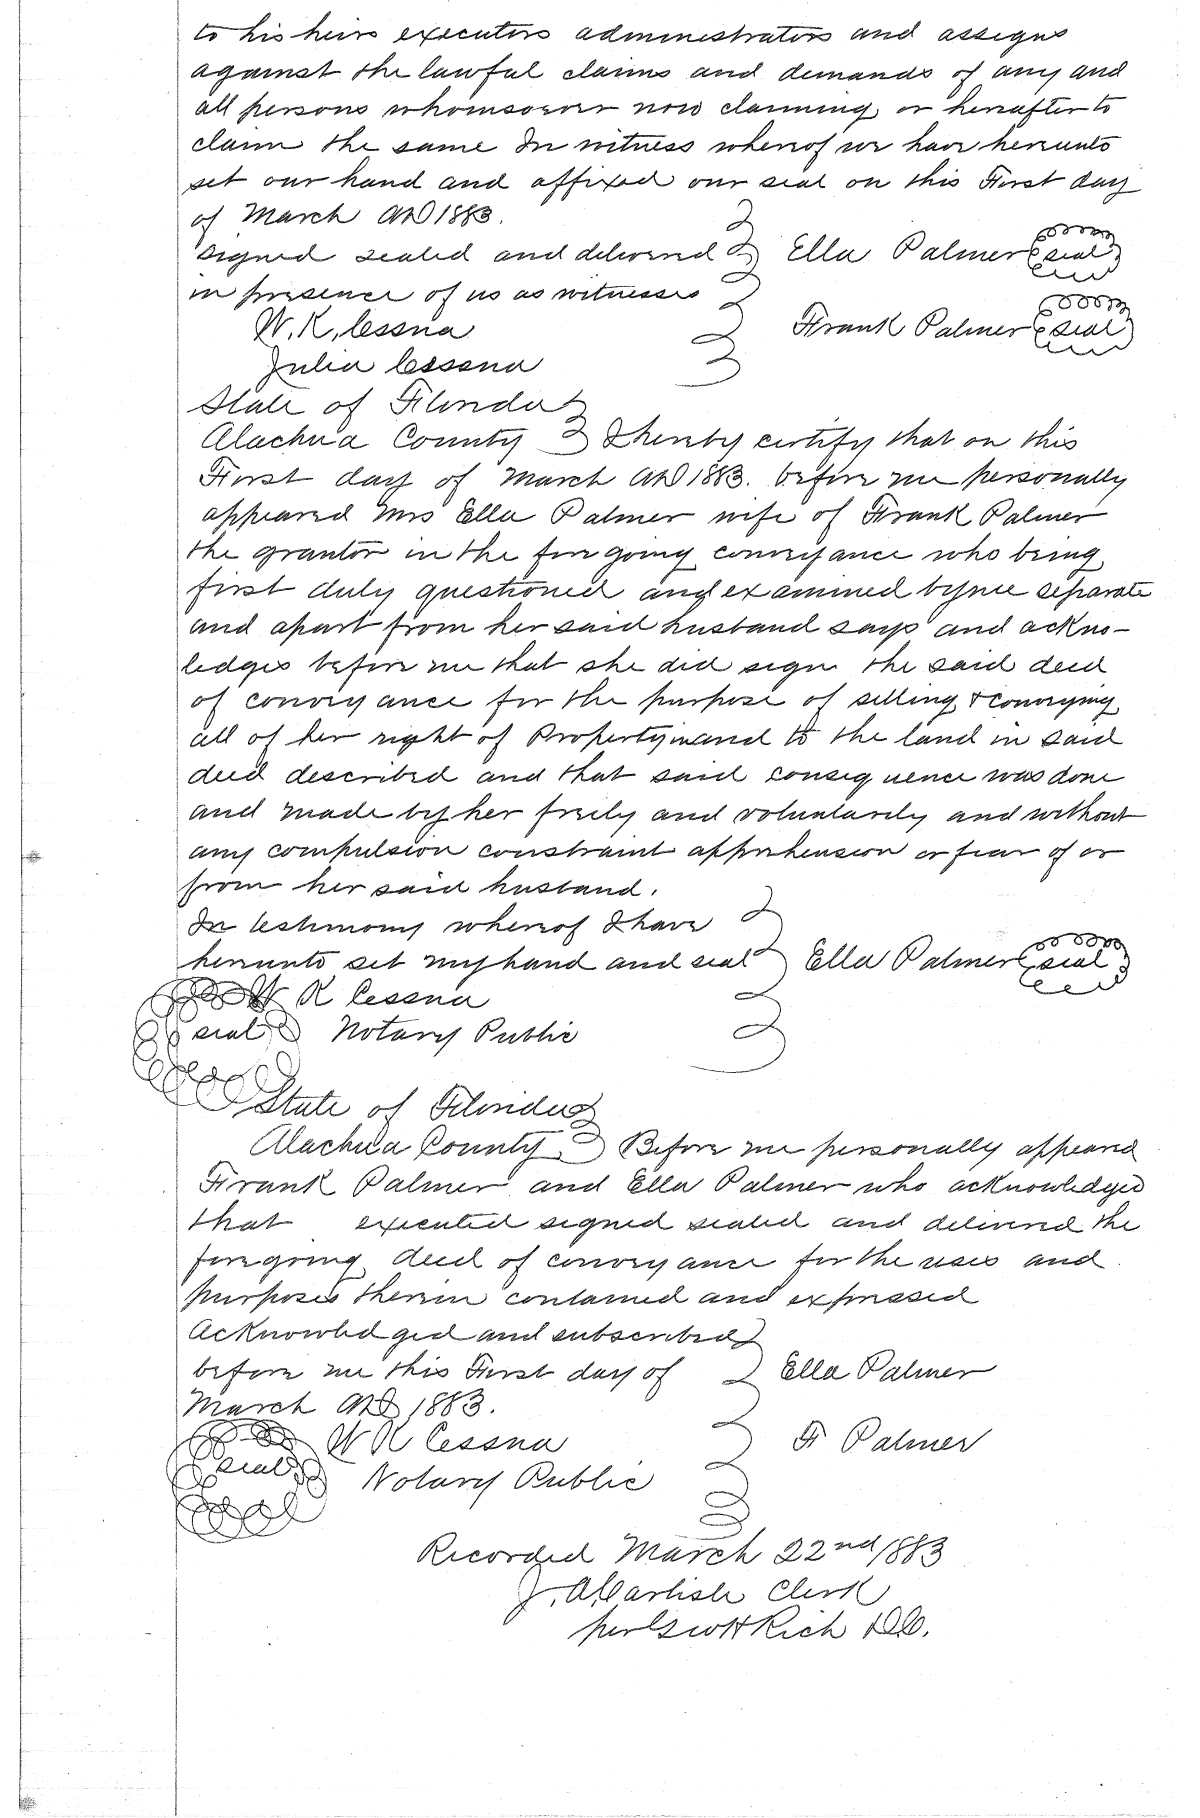 to his heirs executors administrators and assigns
against the lawful claims and demands of any and
all persons whomsoever now claiming or hereafter to
claim the same In witness whereof we have hereunto
set our hand and affixed our seal on this First day
of March AD 1883.
signed sealed and delivered Ella Palmer seal
in presence of us as witnesses
W. K. Cessna Frank Palmer seal
Julia Cessna
State of Florida
Alachua County I hereby certify that on this
First day of March AD 1883. before me personally
appeared Mrs Ella Palmer wife of Frank Palmer
the grantor in the foregoing conveyance who being
first duly questioned and examined by me separate
and apart from her said husband says and acknow-
ledges before me that she did sign the said deed
of conveyance for the purpose of selling & conveying
all of her right of Property in and to the land in said
deed described and that said consequence was done
and made by her freely and voluntarily and without
any compulsion constraint apprehension or fear of or
from her said husband.
In testimony whereof I have
hereunto set my hand and seal Ella Palmer seal
W K Cessna
seal Notary Public
State of Florida
Alachua County Before me personally appeared
Frank Palmer and Ella Palmer who acknowledged
that executed signed sealed and delivered the
foregoing deed of conveyance for the uses and
purposes therein contained and expressed
Acknowledged and subscribed
before me this First day of Ella Palmer
March AD 1883.
W K Cessna F Palmer
seal Notary Public
Recorded March 22nd 1883
J. A Carlisle Clerk
per Geo H Rich D.C.